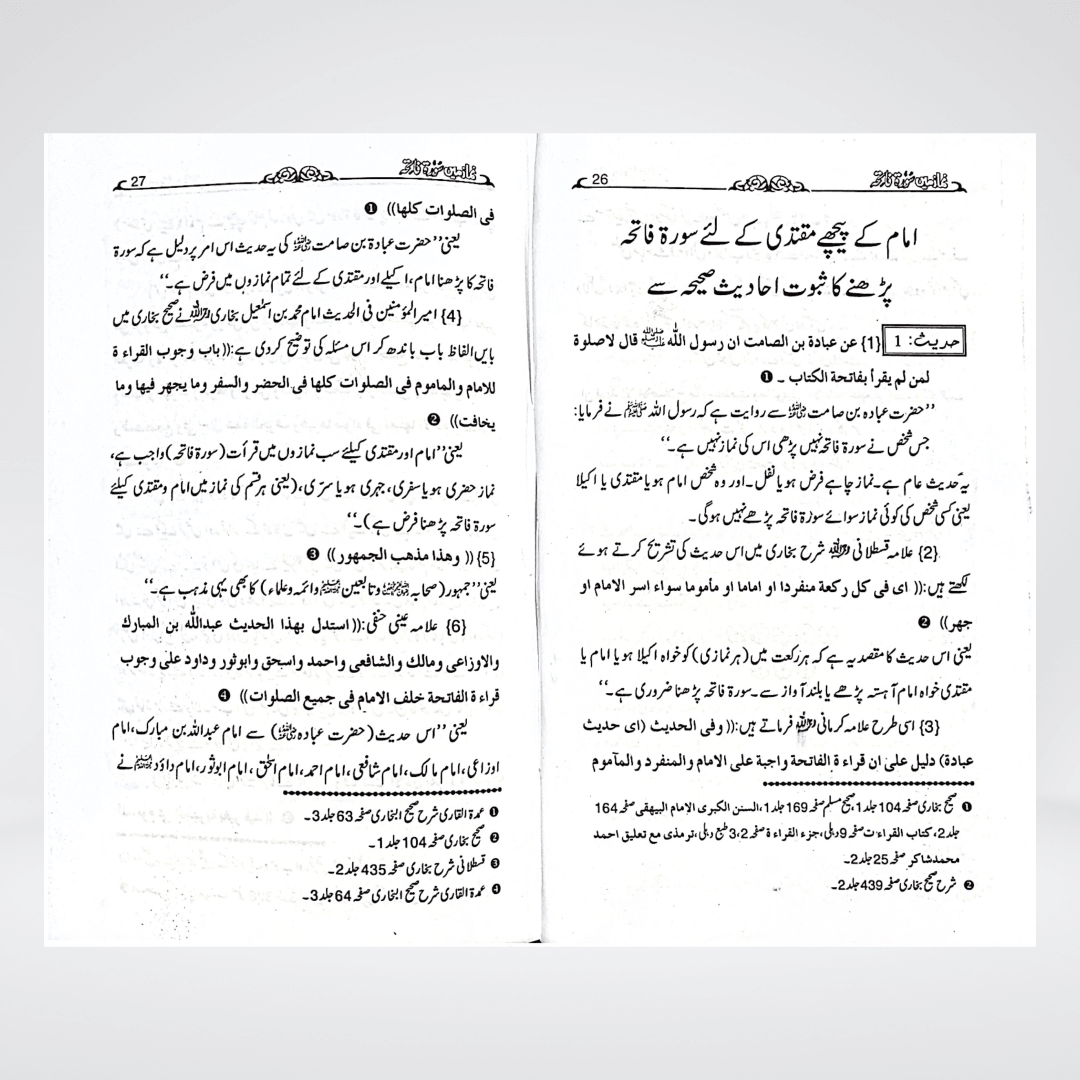 نماز میں سورۃ فاتحہ
26
امام کے پیچھے مقتدی کے لئے سورۃ فاتحہ
پڑھنے کا ثبوت احادیث صحیحہ سے
حدیث: 1 {1} عن عبادة بن الصامت ان رسول اللہ ﷺ قال لاصلوة
لمن لم یقرأ بفاتحة الکتاب ۔ ❶
’’حضرت عبادہ بن صامت رضی اللہ عنہ سے روایت ہے کہ رسول اللہ ﷺ نے فرمایا:
جس شخص نے سورۃ فاتحہ نہیں پڑھی اس کی نماز نہیں ہے۔‘‘
یہ حدیث عام ہے۔ نماز چاہے فرض ہو یا نفل۔ اور وہ شخص امام ہو یا مقتدی یا اکیلا
یعنی کسی شخص کی کوئی نماز سوائے سورۃ فاتحہ پڑھے نہیں ہوگی۔
{2} علامہ قسطلانی رحمہ اللہ شرح بخاری میں اس حدیث کی تشریح کرتے ہوئے
لکھتے ہیں:(( ای فی کل رکعة منفردا او اماما او مأموما سواء اسر الامام او
جهر)) ❷
یعنی اس حدیث کا مقصد یہ ہے کہ ہر رکعت میں (ہر نمازی) کو خواہ اکیلا ہو یا امام یا
مقتدی خواہ امام آہستہ پڑھے یا بلند آواز سے۔ سورۃ فاتحہ پڑھنا ضروری ہے۔‘‘
{3} اسی طرح علامہ کرمانی رحمہ اللہ فرماتے ہیں:(( وفی الحدیث (ای حدیث
عبادة) دلیل علی ان قراء ة الفاتحة واجبة علی الامام والمنفرد والمآموم
❶ صحیح بخاری صفحہ 104 جلد 1، صحیح مسلم صفحہ 169 جلد 1، السنن الکبری الامام البیهقی صفحہ 164
جلد 2، کتاب القراءت صفحہ 9 دہلی، جزء القراء ة صفحہ 2،3 طبع دہلی، ترمذی مع تعلیق احمد
محمد شاکر صفحہ 25 جلد 2۔
❷ شرح صحیح بخاری صفحہ 439 جلد 2۔
نماز میں سورۃ فاتحہ
27
فی الصلوات کلها)) ❶
یعنی’’حضرت عبادۃ بن صامت رضی اللہ عنہ کی یہ حدیث اس امر پر دلیل ہے کہ سورۃ
فاتحہ کا پڑھنا امام، اکیلے اور مقتدی کے لئے تمام نمازوں میں فرض ہے۔‘‘
{4} امیر المؤمنین فی الحدیث امام محمد بن اسمٰعیل بخاری رحمہ اللہ نے صحیح بخاری میں
بایں الفاظ باب باندھ کر اس مسئلہ کی توضیح کردی ہے:((باب وجوب القراء ة
للامام والماموم فی الصلوات کلها فی الحضر والسفر وما یجهر فیها وما
یخافت)) ❷
یعنی’’امام اور مقتدی کیلئے سب نمازوں میں قرأت (سورۃ فاتحہ) واجب ہے،
نماز حضری ہو یا سفری، جہری ہو یا سری، (یعنی ہر قسم کی نماز میں امام و مقتدی کیلئے
سورۃ فاتحہ پڑھنا فرض ہے)۔‘‘
{5} (( وهذا مذهب الجمهور)) ❸
یعنی’’جمہور (صحابہ رضی اللہ عنہم و تابعین رحمہم اللہ وائمہ وعلماء) کا بھی یہی مذہب ہے۔‘‘
{6} علامہ عینی حنفی:(( استدل بهذا الحدیث عبداللہ بن المبارك
والاوزاعی ومالك والشافعی واحمد واسحق وابوثور وداود علی وجوب
قراء ة الفاتحة خلف الامام فی جمیع الصلوات)) ❹
یعنی’’اس حدیث (حضرت عبادہ رضی اللہ عنہ) سے امام عبداللہ بن مبارک، امام
اوزاعی، امام مالک، امام شافعی، امام احمد، امام اسحٰق، امام ابوثور، امام داؤد رحمہم اللہ نے
❶ عمدۃ القاری شرح صحیح البخاری صفحہ 63 جلد 3۔
❷ صحیح بخاری صفحہ 104 جلد 1۔
❸ قسطلانی شرح بخاری صفحہ 435 جلد 2۔
❹ عمدۃ القاری شرح صحیح البخاری صفحہ 64 جلد 3۔